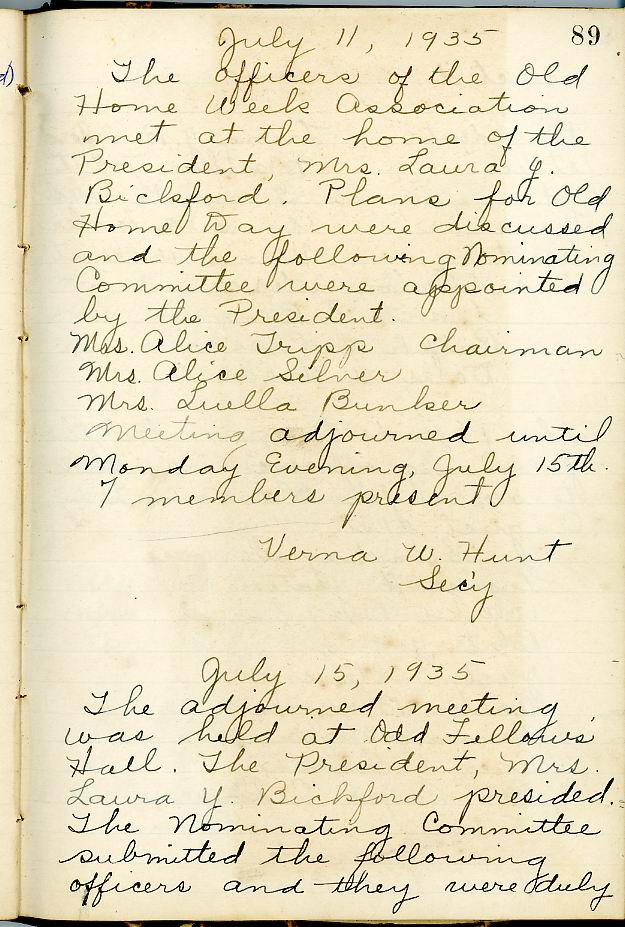 89
July 11, 1935
The officers of the Old
Home Week Association
met at the home of the
President, Mrs. Laura Y.
Bickford. Plans for Old
Home Day were discussed
and the following Nominating
Committee were appointed
by the President.
Mrs. Alice Tripp Chairman
Mrs. Alice Silver
Mrs. Luella Bunker
Meeting adjourned until
Monday Evening, July 15th.
7 members present
Verna W. Hunt
Sec'y
July 15, 1935
The adjourned meeting
was held at Odd Fellows'
Hall. The President, Mrs.
Laura Y. Bickford presided.
The Nominating Committee
submitted the following
officers and they were duly